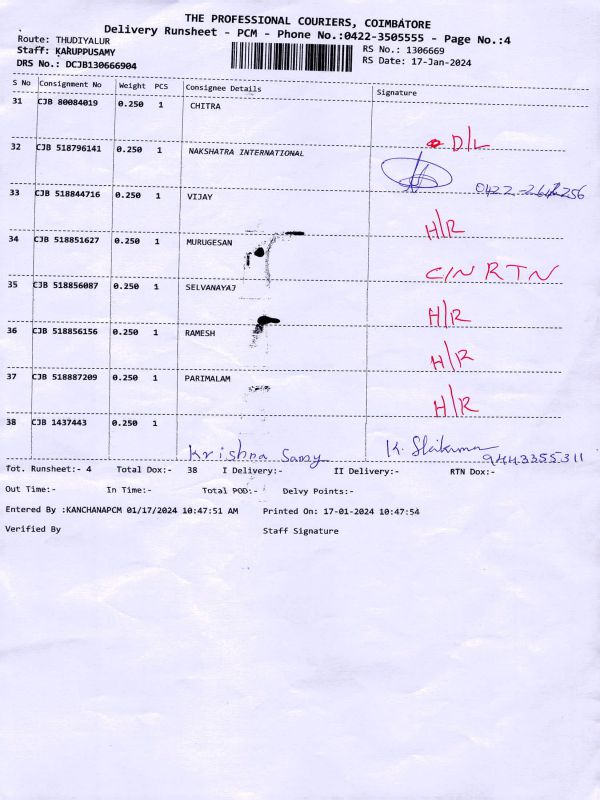 THE PROFESSIONAL COURIERS, COIMBATORE
Delivery Runsheet - PCM - Phone No.:0422-3505555 - Page No.:4
Route: THUDIYALUR
RS No.: 1306669
Staff: KARUPPUSAMY
RS Date: 17-Jan-2024
DRS No.: DCJB130666904
S No Consignment No Weight PCS Consignee Details Signature
31 CJB 80084019 0.250 1 CHITRA
D/L
32 CJB 518796141 0.250 1 NAKSHATRA INTERNATIONAL
33 CJB 518844716 0.250 1 VIJAY
H/R
34 CJB 518851627 0.250 1 MURUGESAN
C/N RTN
35 CJB 518856087 0.250 1 SELVANAYAJ
H/R
36 CJB 518856156 0.250 1 RAMESH
H/R
37 CJB 518887209 0.250 1 PARIMALAM
H/R
38 CJB 1437443 0.250 1
Krishna Samy K. 9443355311
Tot. Runsheet:- 4 Total Dox:- 38 I Delivery:- II Delivery:- RTN Dox:-
Out Time:- In Time:- Total POD:- Delvy Points:-
Entered By :KANCHANAPCM 01/17/2024 10:47:51 AM Printed On: 17-01-2024 10:47:54
Verified By Staff Signature